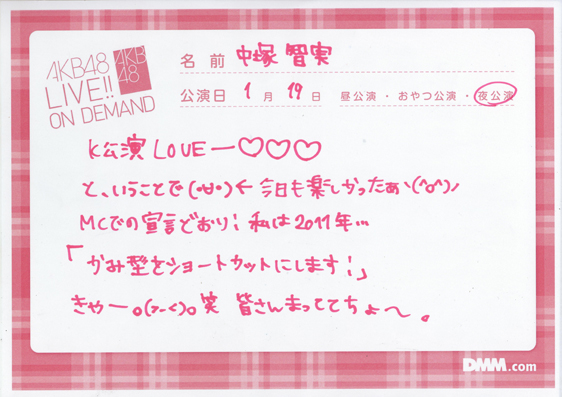 AKB48
LIVE!!
ON DEMAND
AKB
48
名前 中塚 智実
公演日 1月19日 昼公演・おやつ公演・夜公演
K公演 LOVE—♡♡♡
と、いうことで(・∀・)← 今日も楽しかったぁヽ(^o^)ノ
MCでの宣言どおり! 私は2011年…
「かみ型をショートカットにします!」
きゃー。(>-<)。笑 皆さんまっててちょ〜。
DMM.com